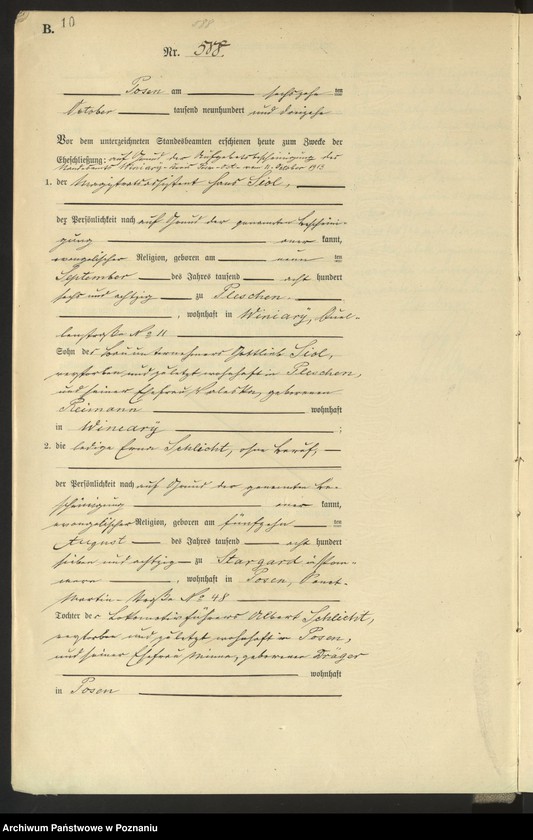 B. 10
588
Nr. 588.
Posen am sechszehn ten
October tausend neunhundert und dreizehn
Vor dem unterzeichneten Standesbeamten erschienen heute zum Zwecke der
Eheschließung: auf Grund der Aufgebotsbescheinigung des
Standesamts Winiary vom 11. Oktober 1913
1. der Magistratsassistent Hans Siol,
der Persönlichkeit nach auf Grund der genannten Beschei-
nigung aner kannt,
evangelischer Religion, geboren am neun ten
September des Jahres tausend acht hundert
sechs und achtzig zu Pleschen
, wohnhaft in Winiary,
straße No 11
Sohn des Bauunternehmers Gottlieb Siol,
verstorben und zuletzt wohnhaft in Pleschen,
und seiner Ehefrau Valeska, geborenen
Reimann wohnhaft
in Winiary ;
2. die ledige Erna Schlicht, ohne Beruf,
der Persönlichkeit nach auf Grund der genannten Be-
scheinigung aner kannt,
evangelischer Religion, geboren am fünfzehn ten
August des Jahres tausend acht hundert
sieben und achtzig zu Stargard in Pom-
mern , wohnhaft in Posen,
Martin-straße No 48
Tochter des Lokomotivführers Albert Schlicht,
verstorben und zuletzt wohnhaft in Posen,
und seiner Ehefrau Minna, geborenen Dräger
wohnhaft
in Posen
Archiwum Państwowe w Poznaniu